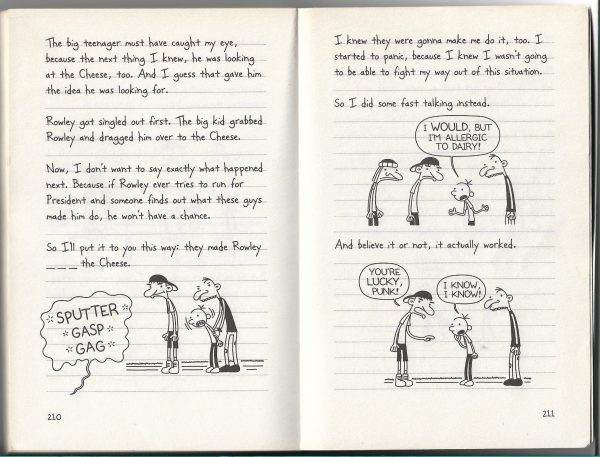 The big teenager must have caught my eye,
because the next thing I knew, he was looking
at the Cheese, too. And I guess that gave him
the idea he was looking for.
Rowley got singled out first. The big kid grabbed
Rowley and dragged him over to the Cheese.
Now, I don't want to say exactly what happened
next. Because if Rowley ever tries to run for
President and someone finds out what these guys
made him do, he won't have a chance.
So I'll put it to you this way: they made Rowley
_ _ _ the Cheese.
SPUTTER
GASP
GAG
210
I knew they were gonna make me do it, too. I
started to panic, because I knew I wasn't going
to be able to fight my way out of this situation.
So I did some fast talking instead.
I WOULD, BUT
I'M ALLERGIC
TO DAIRY!
And believe it or not, it actually worked.
YOU'RE
LUCKY,
PUNK!
I KNOW,
I KNOW!
211